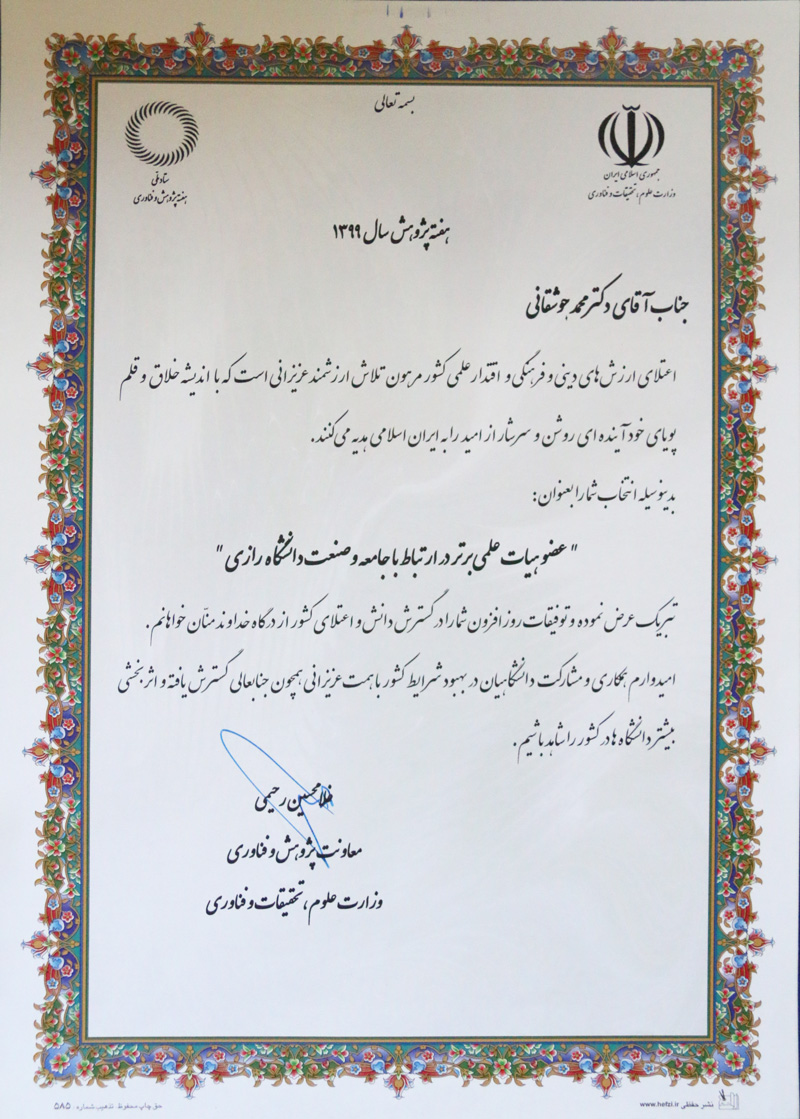 بسمه تعالی
جمهوری اسلامی ایران
وزارت علوم، تحقیقات و فناوری
ستاد ملی
هفته پژوهش و فناوری
هفته پژوهش سال ۱۳۹۹
جناب آقای دکتر محمد جوشقانی
اعتلای ارزش های دینی و فرهنگی و اقتدار علمی کشور مرهون تلاش ارزشمند عزیزانی است که با اندیشه خلاق و قلم
پویای خود آینده ای روشن و سرشار از امید را به ایران اسلامی هدیه می کنند.
بدینوسیله انتخاب شما را بعنوان:
" عضو هیات علمی برتر در ارتباط با جامعه و صنعت دانشگاه رازی "
تبریک عرض نموده و توفیقات روز افزون شما را در گسترش دانش و اعتلای کشور از درگاه خداوند منّان خواهانم.
امیدوارم همکاری و مشارکت دانشگاهیان در بهبود شرایط کشور با همت عزیزانی همچون جنابعالی گسترش یافته و اثربخشی
بیشتر دانشگاه ها در کشور را شاهد باشیم.
غلامحسین رحیمی
معاونت پژوهش و فناوری
وزارت علوم، تحقیقات و فناوری
نشر حفظی www.hefzi.ir
حق چاپ محفوظ تذهیب شماره ۵۸۵